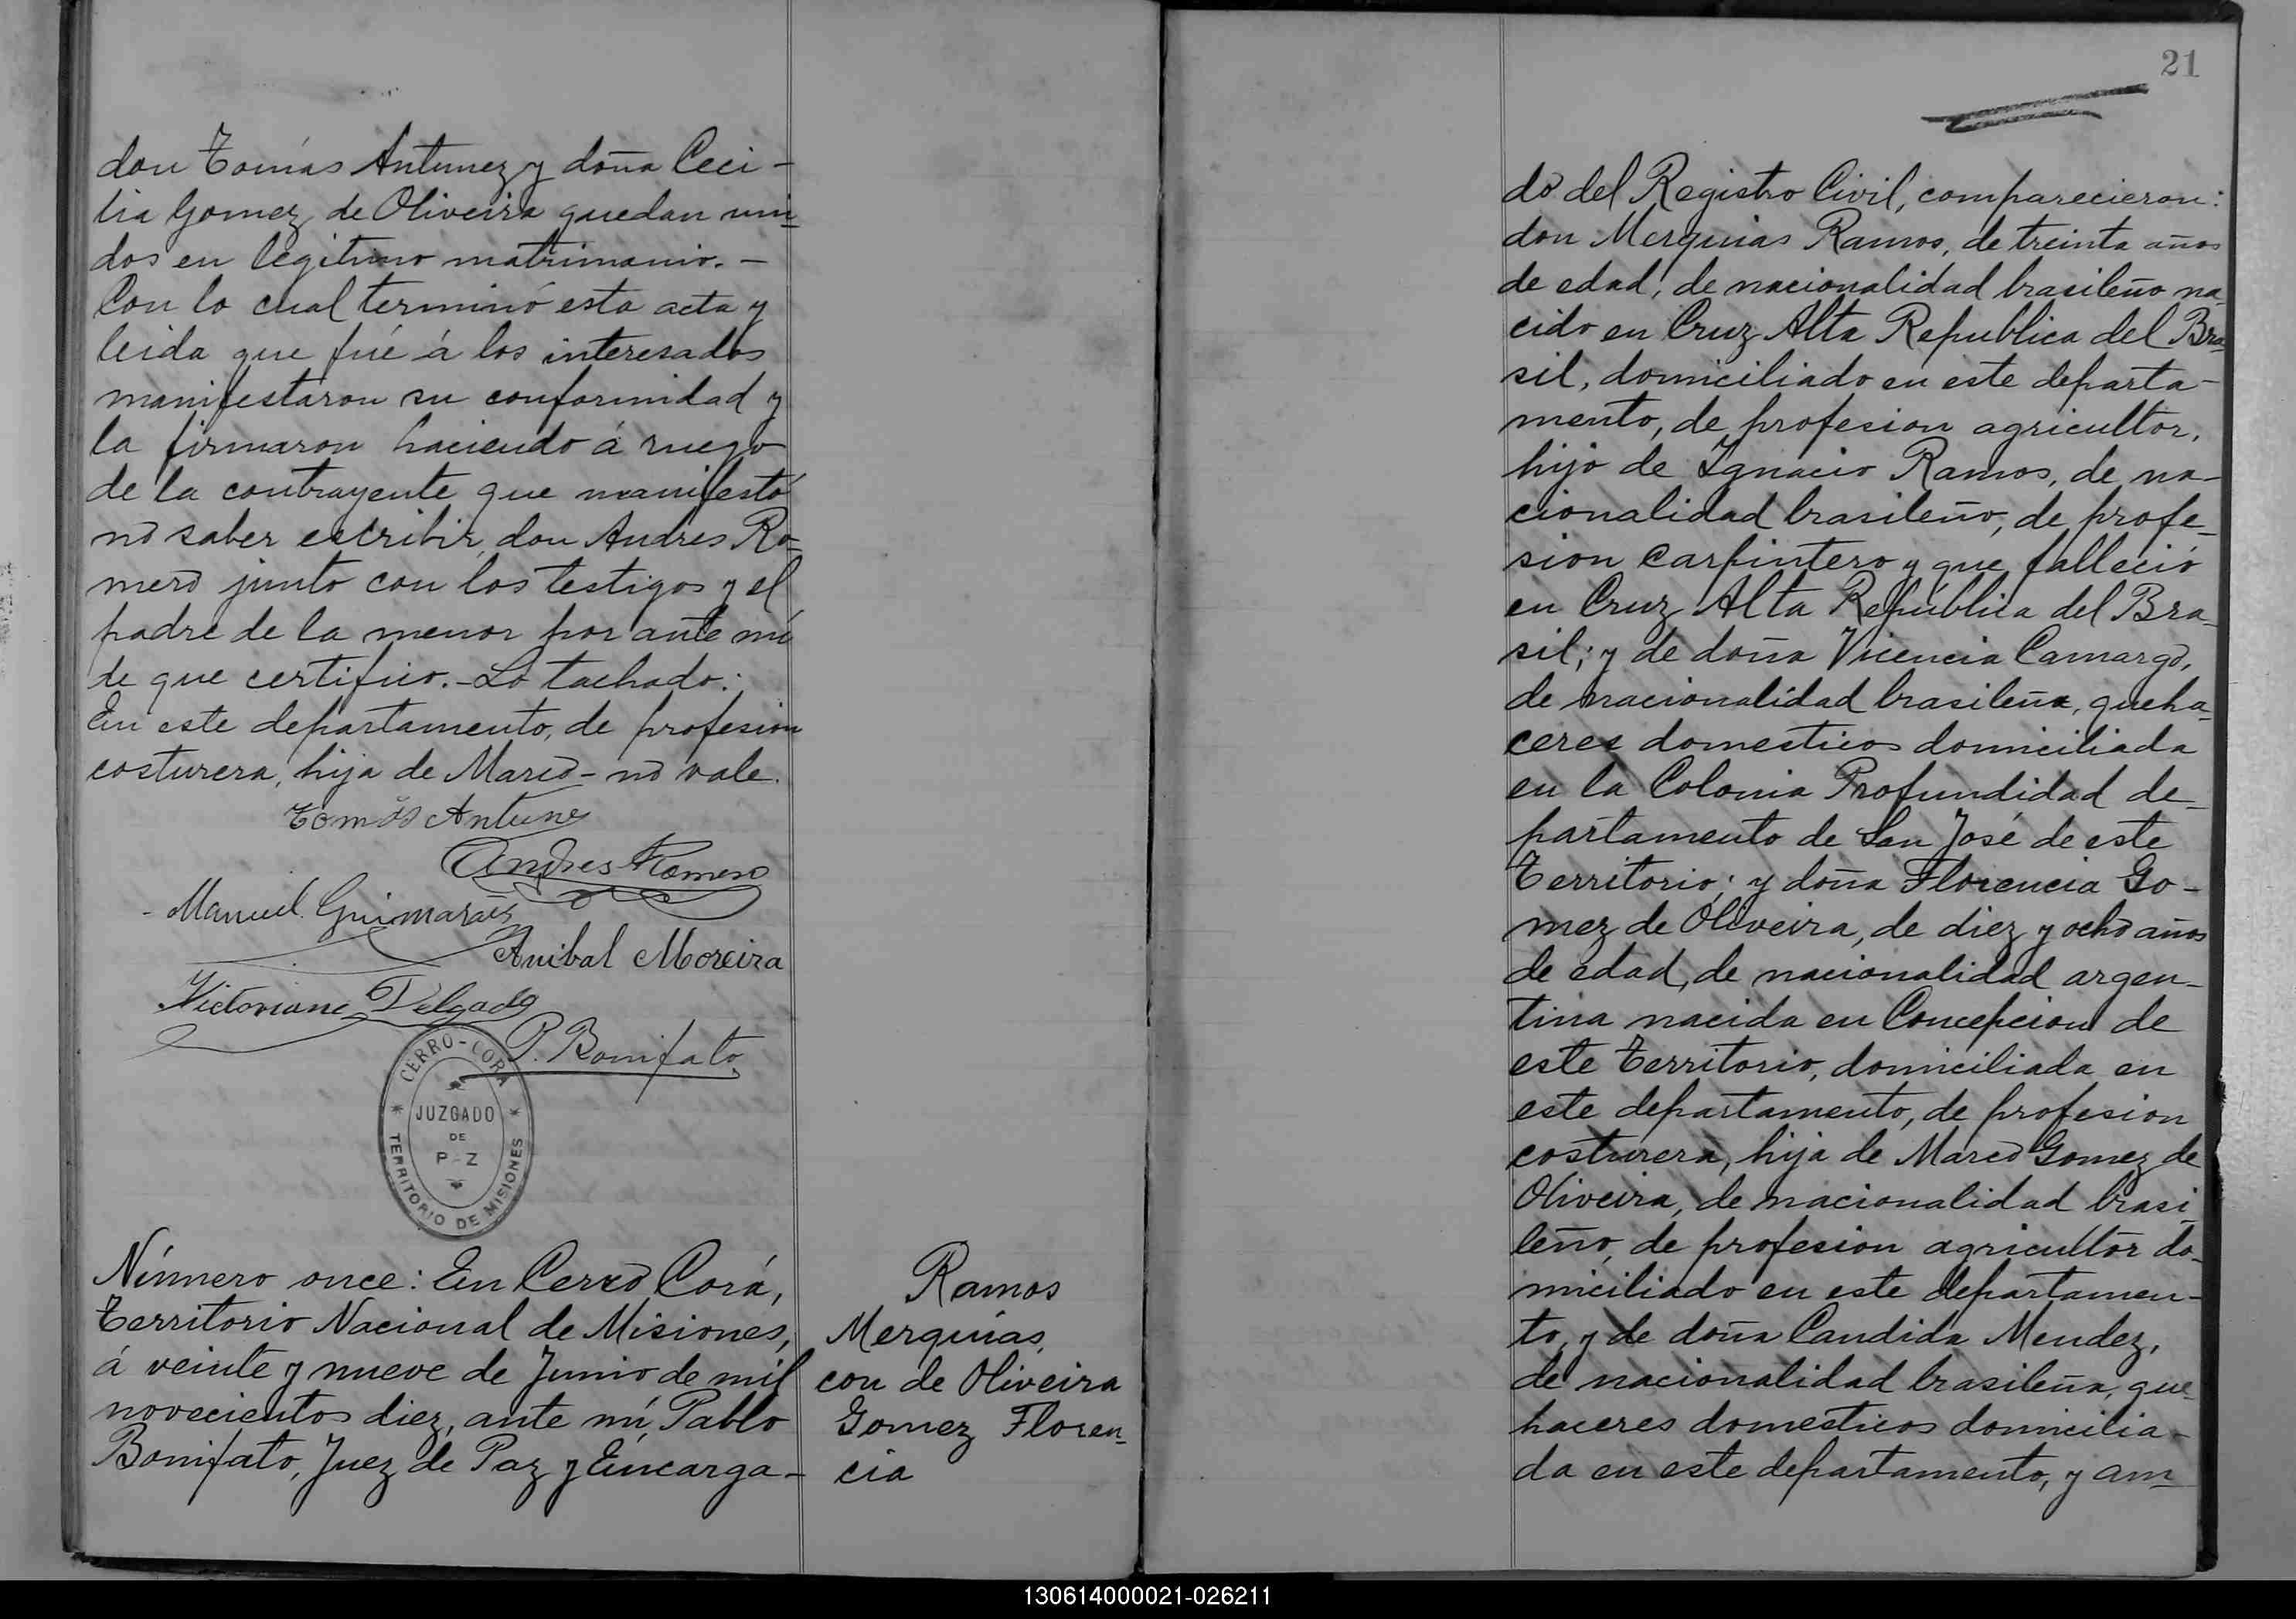 don Tomás Antunez y doña Ceci-
lia Gomez de Oliveira quedan uni-
dos en legitimo matrimonio. -
Con lo cual terminó esta acta y
leida que fué á los interesados
manifestaron su conformidad y
la firmaron haciendo á ruego
de la contrayente que manifestó
no saber escribir, don Andres Ro-
mero junto con los testigos y el
padre de la menor por ante mí
de que certifico.- Lo tachado:
En este departamento, de profesion
costurera, hija de Marco - no vale.
Tomás Antunes
Andres Romero
Manuel Guimarães
Anibal Moreira
Victoriano Delgado
P. Bonifato
CERRO-CORA
JUZGADO
DE
PAZ
TERRITORIO DE MISIONES
Número once: En Cerro Corá,
Territorio Nacional de Misiones,
á veinte y nueve de Junio de mil
novecientos diez, ante mí, Pablo
Bonifato, Juez de Paz y Encarga-
Ramos
Merquias,
con de Oliveira
Gomez Floren-
cia
21
do del Registro Civil, comparecieron:
don Merquias Ramos, de treinta años
de edad, de nacionalidad brasileño na-
cido en Cruz Alta Republica del Bra-
sil, domiciliado en este departa-
mento, de profesion agricultor,
hijo de Ignacio Ramos, de na-
cionalidad brasileño, de profe-
sion carpintero y que falleció
en Cruz Alta República del Bra-
sil; y de doña Vicencia Camargo,
de nacionalidad brasileña, queha-
ceres domesticos domiciliada
en la Colonia Profundidad de-
partamento de San José de este
Territorio; y doña Florencia Go-
mez de Oliveira, de diez y ocho años
de edad, de nacionalidad argen-
tina nacida en Concepcion de
este Territorio, domiciliada en
este departamento, de profesion
costurera, hija de Marco Gomez de
Oliveira, de nacionalidad brasi-
leño, de profesion agricultor do-
miciliado en este departamen-
to, y de doña Candida Mendez,
de nacionalidad brasileña, que-
haceres domesticos domicilia-
da en este departamento, y am-
130614000021-026211